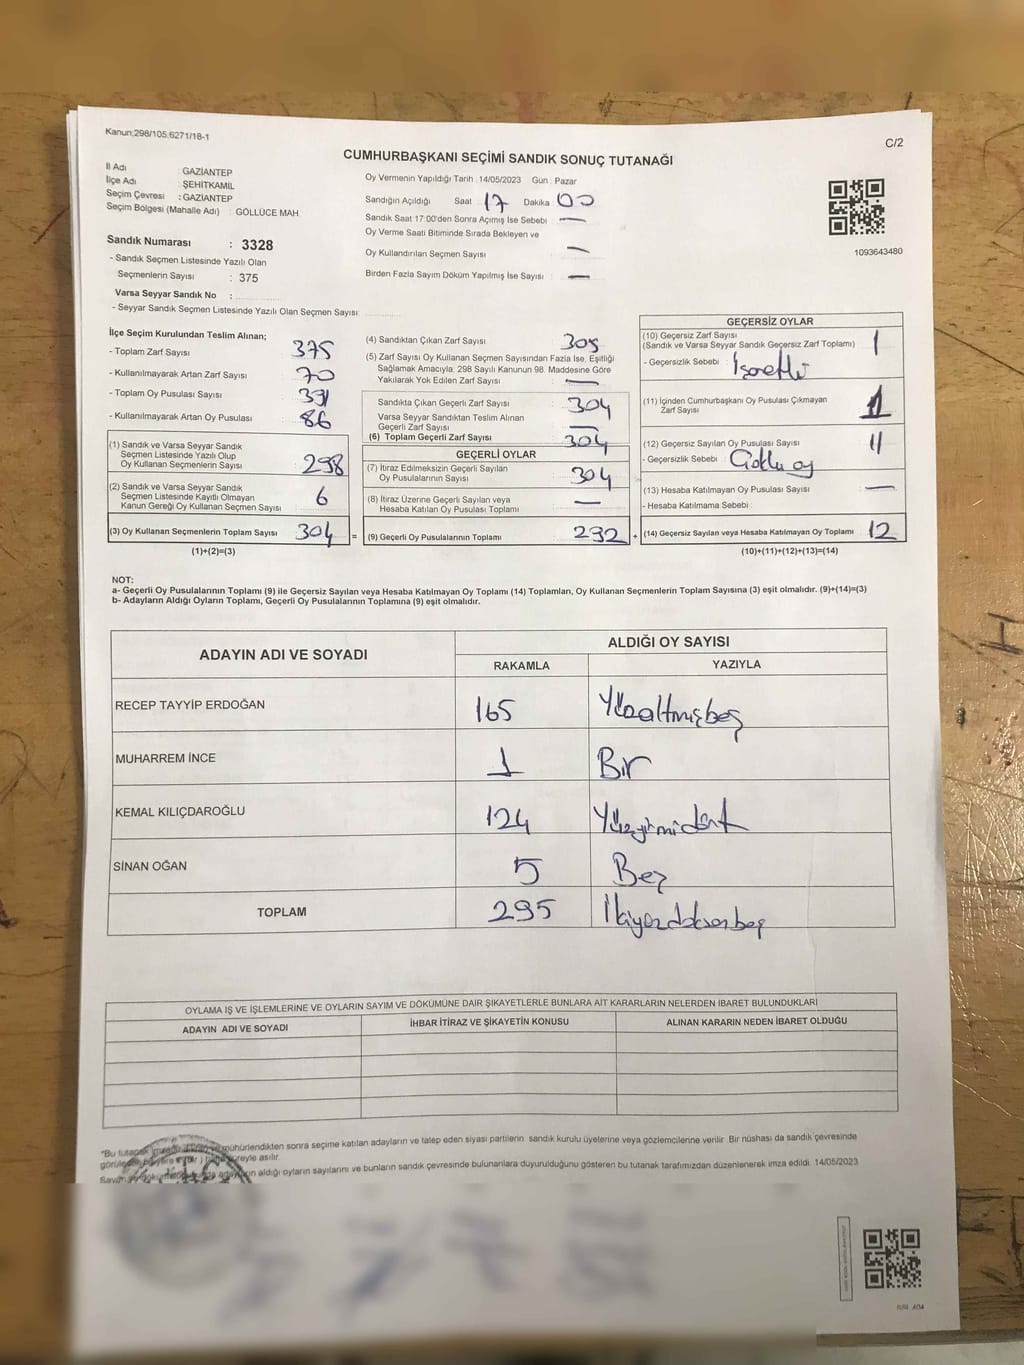 Kanun;298/105,6271/18-1
C/2
CUMHURBAŞKANI SEÇİMİ SANDIK SONUÇ TUTANAĞI
İl Adı : GAZİANTEP
İlçe Adı : ŞEHİTKAMİL
Seçim Çevresi : GAZİANTEP
Seçim Bölgesi (Mahalle Adı) : GÖLLÜCE MAH.
Sandık Numarası : 3328
- Sandık Seçmen Listesinde Yazılı Olan
Seçmenlerin Sayısı : 375
Varsa Seyyar Sandık No :
- Seyyar Sandık Seçmen Listesinde Yazılı Olan Seçmen Sayısı:
Oy Vermenin Yapıldığı Tarih : 14/05/2023 Gün : Pazar
Sandığın Açıldığı Saat 17 Dakika 00
Sandık Saat 17:00'den Sonra Açımış İse Sebebi : —
Oy Verme Saati Bitiminde Sırada Bekleyen ve
Oy Kullandırılan Seçmen Sayısı —
Birden Fazla Sayım Döküm Yapılmış İse Sayısı : —
1093643480
İlçe Seçim Kurulundan Teslim Alınan;
- Toplam Zarf Sayısı 375
- Kullanılmayarak Artan Zarf Sayısı 70
- Toplam Oy Pusulası Sayısı
- Kullanılmayarak Artan Oy Pusulası 86
(1) Sandık ve Varsa Seyyar Sandık
Seçmen Listesinde Yazılı Olup
Oy Kullanan Seçmenlerin Sayısı 298
(2) Sandık ve Varsa Seyyar Sandık
Seçmen Listesinde Kayıtlı Olmayan
Kanun Gereği Oy Kullanan Seçmen Sayısı 6
(3) Oy Kullanan Seçmenlerin Toplam Sayısı 304
=
(1)+(2)=(3)
(4) Sandıktan Çıkan Zarf Sayısı 305
(5) Zarf Sayısı Oy Kullanan Seçmen Sayısından Fazla İse, Eşitliği
Sağlamak Amacıyla, 298 Sayılı Kanunun 98. Maddesine Göre
Yakılarak Yok Edilen Zarf Sayısı —
Sandıkta Çıkan Geçerli Zarf Sayısı 304
Varsa Seyyar Sandıktan Teslim Alınan
Geçerli Zarf Sayısı —
(6) Toplam Geçerli Zarf Sayısı 304
GEÇERLİ OYLAR
(7) İtiraz Edilmeksizin Geçerli Sayılan
Oy Pusulalarının Sayısı 304
(8) İtiraz Üzerine Geçerli Sayılan veya
Hesaba Katılan Oy Pusulası Toplamı —
(9) Geçerli Oy Pusulalarının Toplamı 292
+
GEÇERSİZ OYLAR
(10) Geçersiz Zarf Sayısı
(Sandık ve Varsa Seyyar Sandık Geçersiz Zarf Toplamı) 1
- Geçersizlik Sebebi : İşaretli
(11) İçinden Cumhurbaşkanı Oy Pusulası Çıkmayan
Zarf Sayısı 1
(12) Geçersiz Sayılan Oy Pusulası Sayısı 11
- Geçersizlik Sebebi : Çoklu oy
(13) Hesaba Katılmayan Oy Pusulası Sayısı —
- Hesaba Katılmama Sebebi :
(14) Geçersiz Sayılan veya Hesaba Katılmayan Oy Toplamı 12
(10)+(11)+(12)+(13)=(14)
NOT:
a- Geçerli Oy Pusulalarının Toplamı (9) ile Geçersiz Sayılan veya Hesaba Katılmayan Oy Toplamı (14) Toplamları, Oy Kullanan Seçmenlerin Toplam Sayısına (3) eşit olmalıdır. (9)+(14)=(3)
b- Adayların Aldığı Oyların Toplamı, Geçerli Oy Pusulalarının Toplamına (9) eşit olmalıdır.
ADAYIN ADI VE SOYADI
ALDIĞI OY SAYISI
RAKAMLA YAZIYLA
RECEP TAYYİP ERDOĞAN 165 Yüzaltmışbeş
MUHARREM İNCE 1 Bir
KEMAL KILIÇDAROĞLU 124 Yüzyirmidört
SİNAN OĞAN 5 Beş
TOPLAM 295 İkiyüzdoksanbeş
OYLAMA İŞ VE İŞLEMLERİNE VE OYLARIN SAYIM VE DÖKÜMÜNE DAİR ŞİKAYETLERLE BUNLARA AİT KARARLARIN NELERDEN İBARET BULUNDUKLARI
ADAYIN ADI VE SOYADI İHBAR İTİRAZ VE ŞİKAYETİN KONUSU ALINAN KARARIN NEDEN İBARET OLDUĞU
*Bu tutanak mühürlendikten sonra seçime katılan adayların ve talep eden siyasi partilerin sandık kurulu üyelerine veya gözlemcilerine verilir. Bir nüshası da sandık çevresinde
süreyle asılır.
aldığı oyların sayılarını ve bunların sandık çevresinde bulunanlara duyurulduğunu gösteren bu tutanak tarafımızdan düzenlenerek imza edildi. 14/05/2023